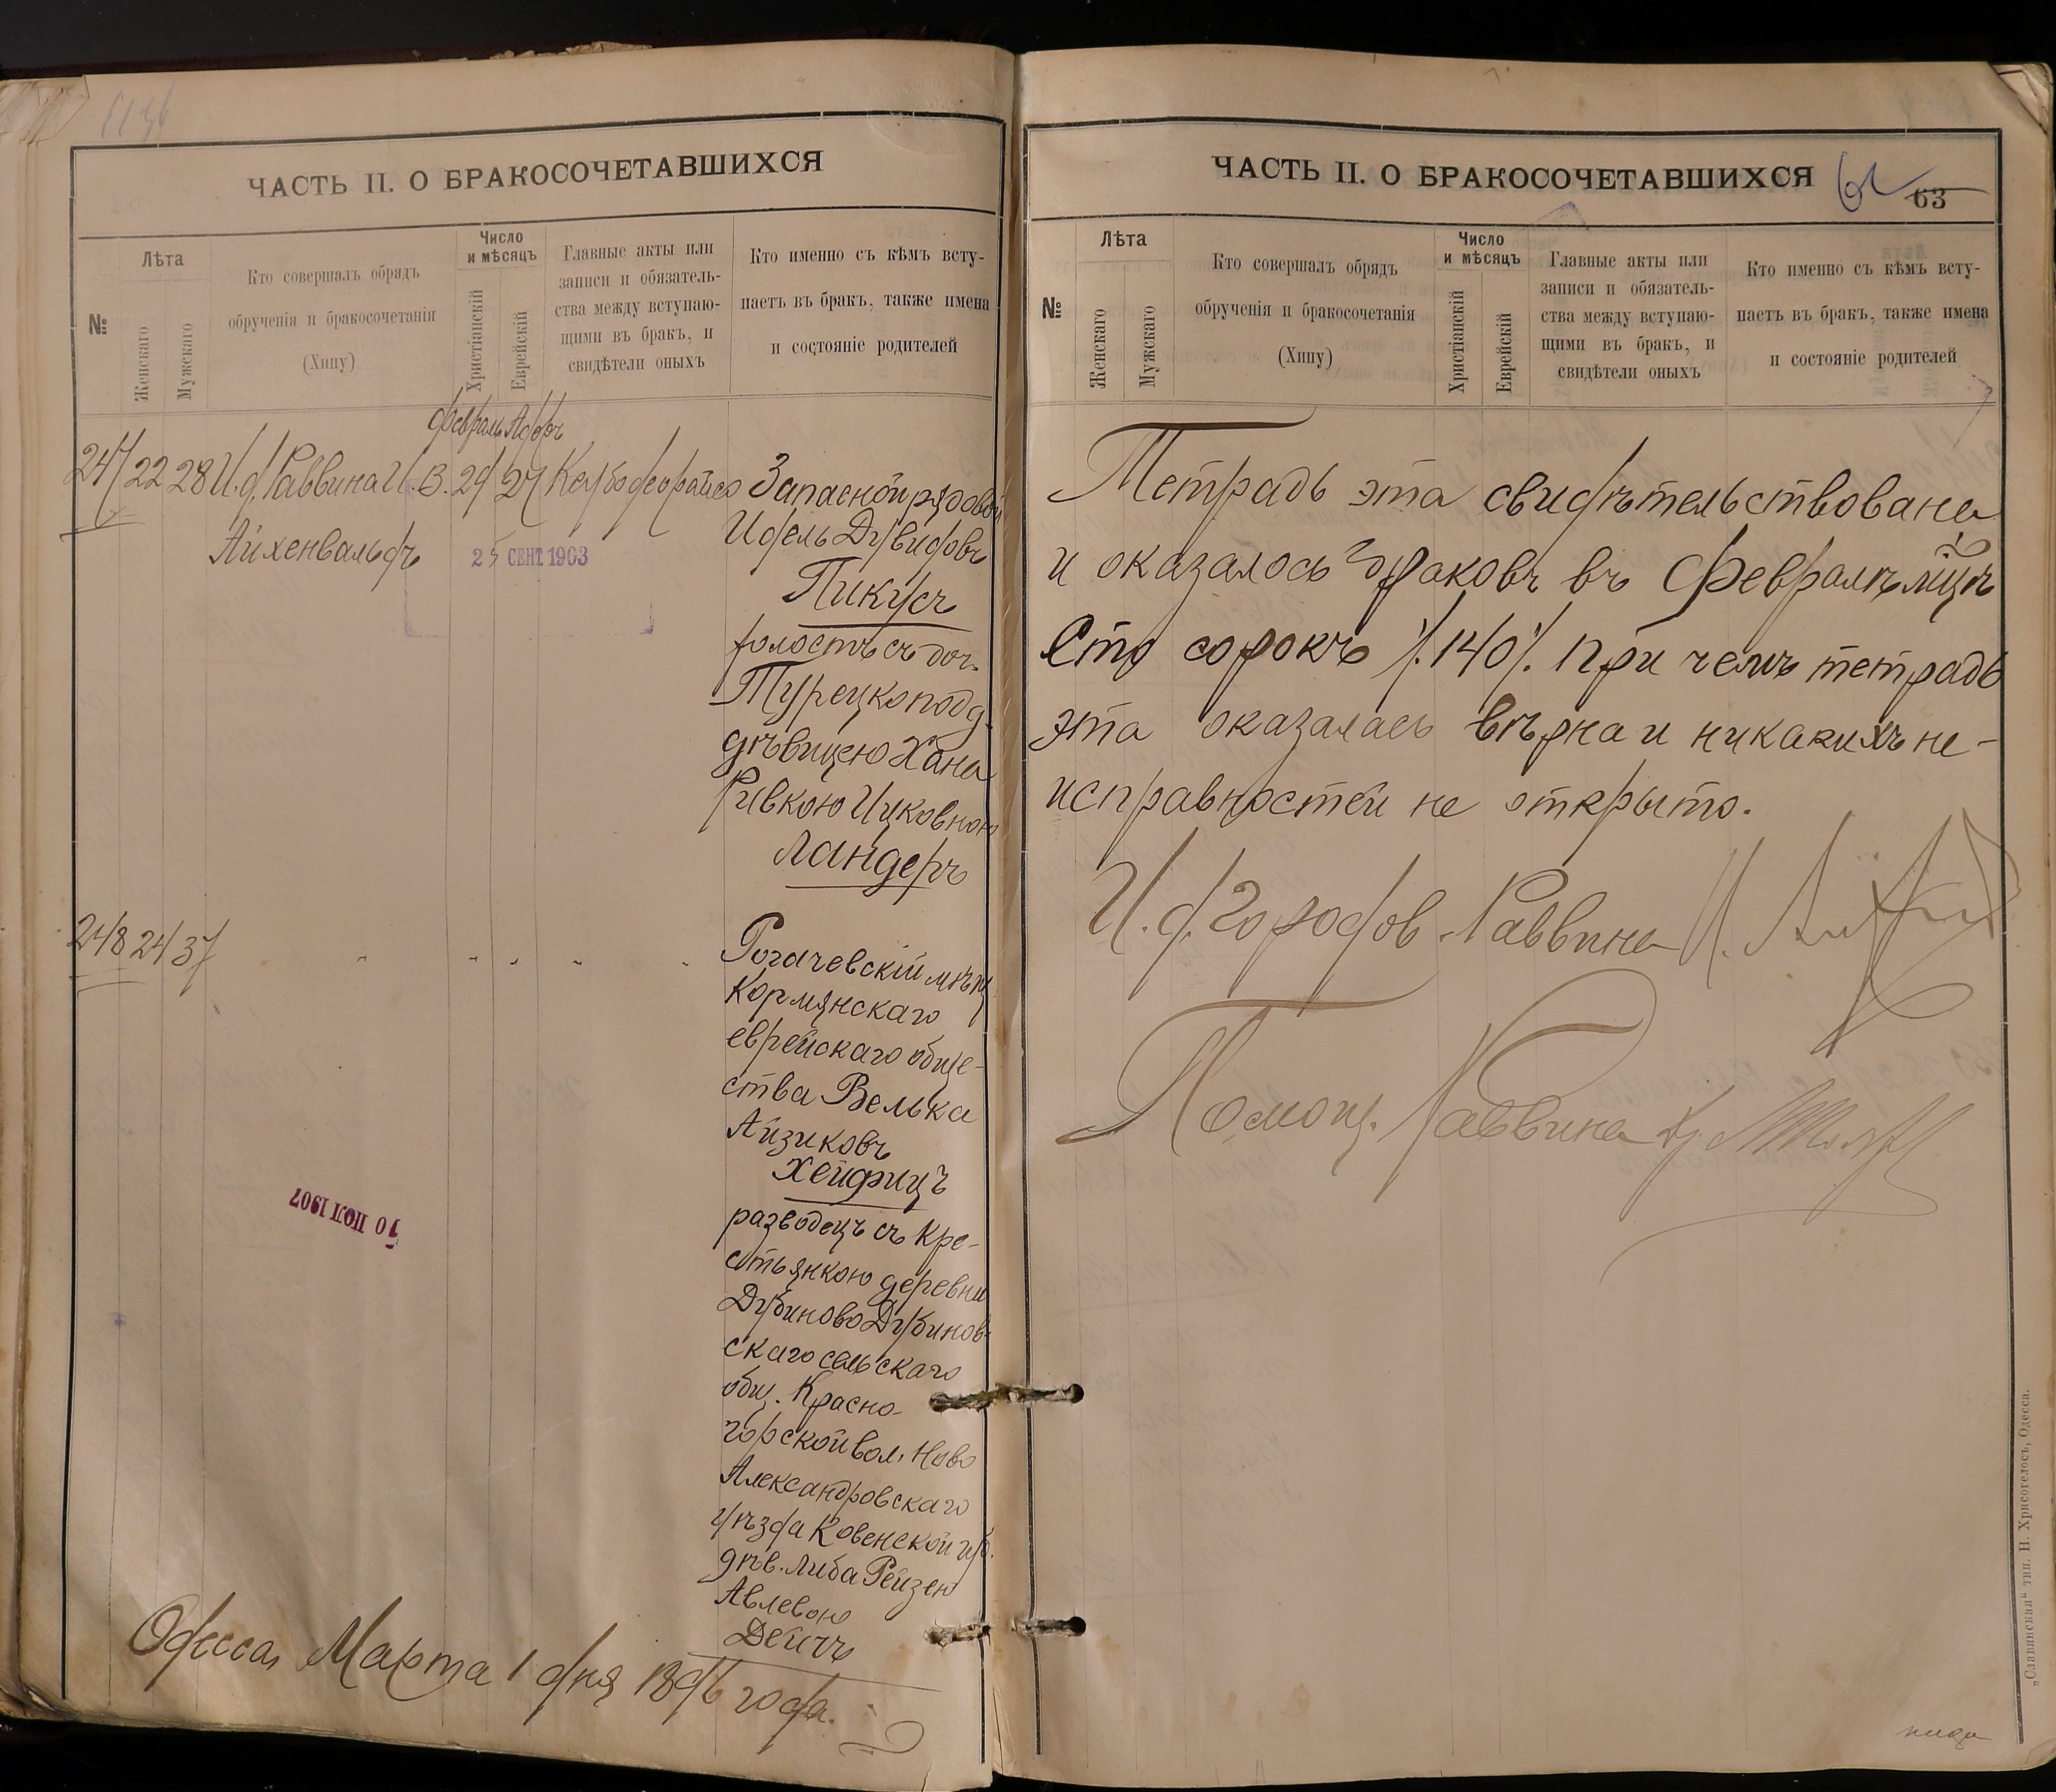 ЧАСТЬ II. О БРАКОСОЧЕТАВШИХСЯ
№
Лѣта
Женскаго
Мужскаго
Кто совершалъ обрядъ
обрученія и бракосочетанія
(Хипу)
Число
и мѣсяцъ
Христіанскій
Еврейскій
Главные акты или
записи и обязатель-
ства между вступаю-
щими въ бракъ, и
свидѣтели оныхъ
Кто именно съ кѣмъ всту-
паетъ въ бракъ, также имена
и состояніе родителей
Февраль Адаръ
247 22 28 И. д. Раввина И. В. 29 27
Айхенвальдъ
25 СЕНТ. 1903
Запасной рядовой
Идель Дувидовъ
Пикусъ
холостъ съ доч.
Турецкоподд.
дѣвицею Хана
Ривкою Ицковною
Ландеръ
248 24 37 " " " " "
Рогачевскій мѣщ
Кормянскаго
еврейскаго обще-
ства Велька
Айзиковъ
Хейфицъ
разводецъ съ Кре-
стьянкою деревни
Дубиново Дубинов-
скаго сельскаго
общ. Красно-
горской вол. Ново
Александровскаго
уѣзда Ковенской губ.
дѣв. Либа Рейзею
Авлевою
Дейчъ
10 ІЮЛ 1907
Одесса, Марта 1 дня 1896 года.
ЧАСТЬ II. О БРАКОСОЧЕТАВШИХСЯ
62 63
№
Лѣта
Женскаго
Мужскаго
Кто совершалъ обрядъ
обрученія и бракосочетанія
(Хипу)
Число
и мѣсяцъ
Христіанскій
Еврейскій
Главные акты или
записи и обязатель-
ства между вступаю-
щими въ бракъ, и
свидѣтели оныхъ
Кто именно съ кѣмъ всту-
паетъ въ бракъ, также имена
и состояніе родителей
Тетрадь эта свидѣтельствована
и оказалось браковъ въ Февралѣ мцѣ
Сто сорокъ /140/. При чемъ тетрадь
эта оказалась вѣрна и никакихъ не-
исправностей не открыто.
И. д. Городов. Раввина
Помощ. Раввина
„Славянская" тип. Н. Хрисогелосъ, Одесса.